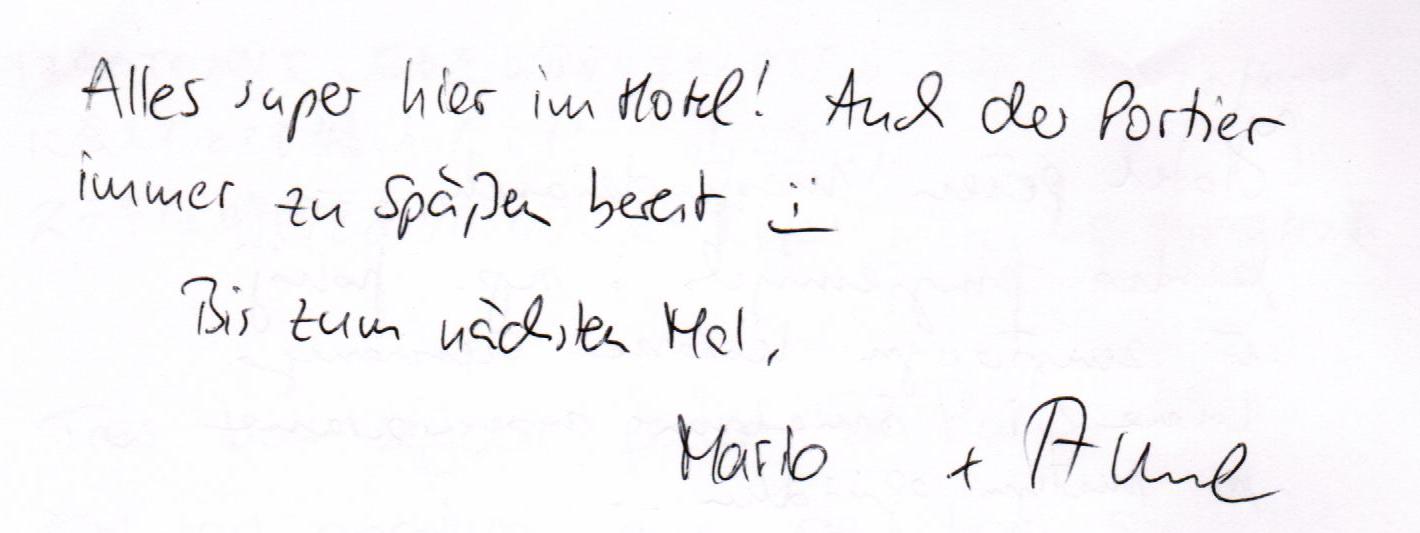 Alles super hier im Hotel! Auch der Portier
immer zu Späßen bereit :)
Bis zum nächsten Mal,
Mario +